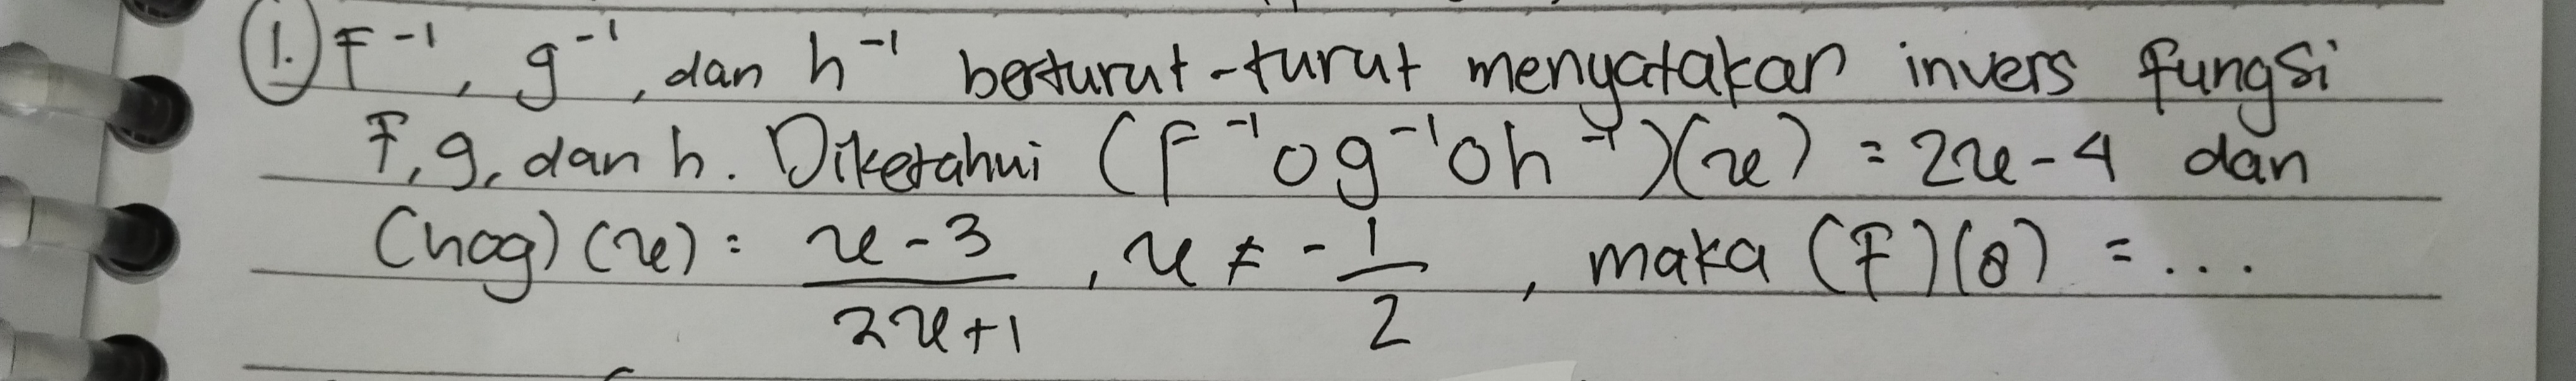 1. F⁻¹, g⁻¹, dan h⁻¹ berturut-turut menyatakan invers fungsi
F, g, dan h. Diketahui (F⁻¹og⁻¹oh⁻¹)(x) = 2x-4 dan
(hog)(x) = x-3 / 2x+1, x ≠ -1/2, maka (F)(8) = ...